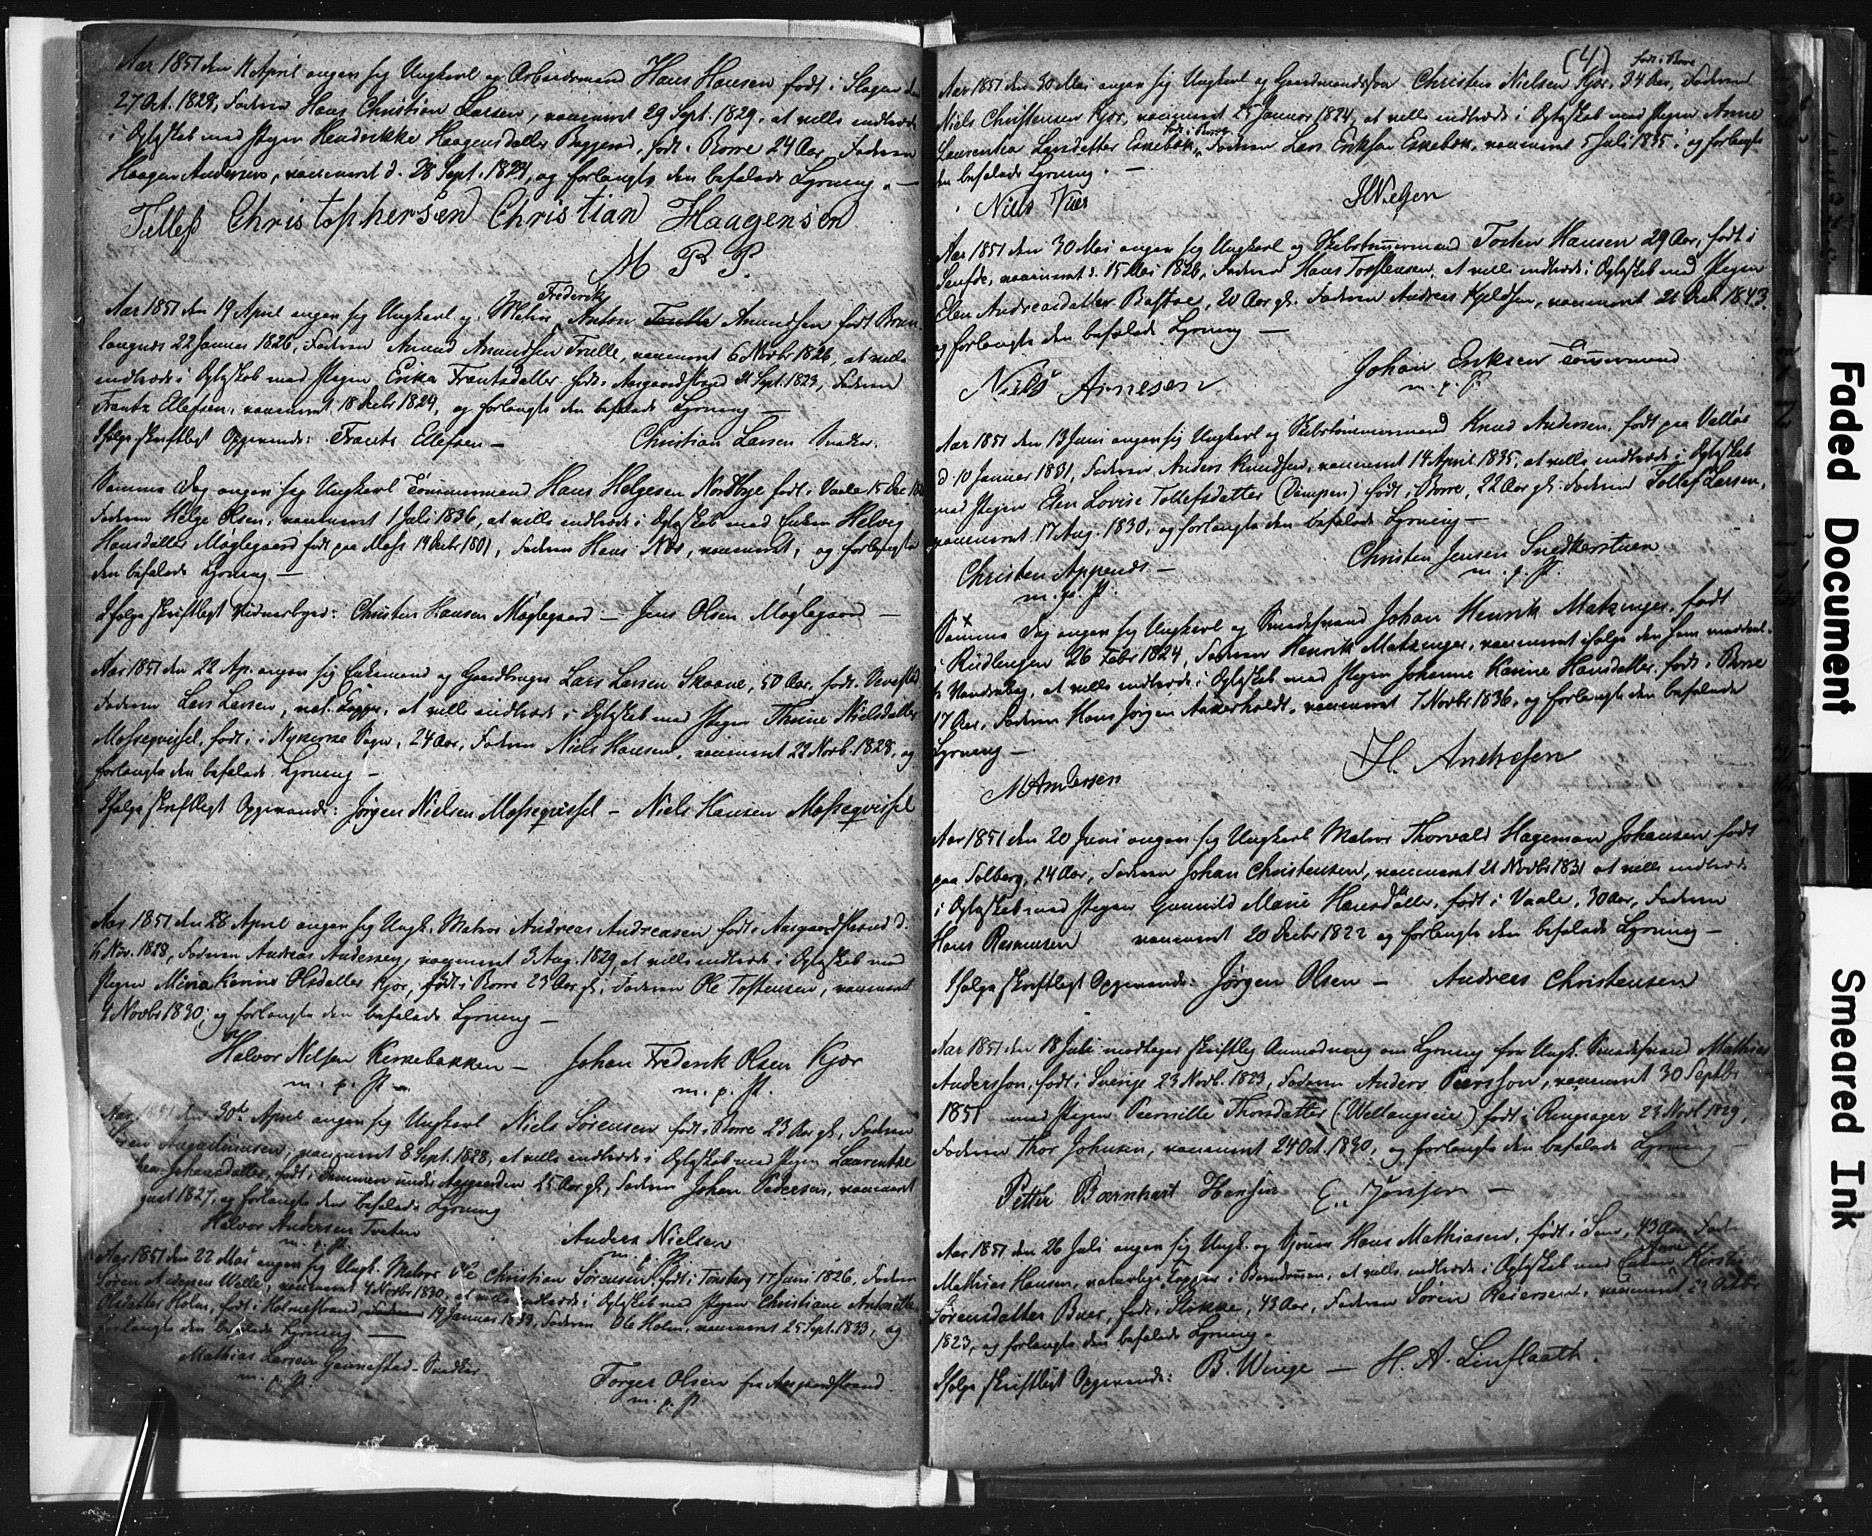 Aar 1851 den 11 April angav sig Ungkarl og Arbeidsmand Hans Hansen født i Slagen den
27 Oct. 1828, Faderen Hans Christian Larsen, vaccineret 29 Sept. 1829, at ville indtræde
i Egteskab med Pigen Hendrikke Haagensdatter født i Borre 24 Aar, Faderen
Haagen Andersen, vaccineret d. 28 Sept. 1829, og forlangte den befalede Lysning. —
Tellefs Christophersen Christian Haagensen
M P P.
Frederik
Aar 1851 den 19 April angav sig Ungkarl og Matros Anton Amundsen født
22 Januar 1826, Faderen Amund Amundsen Trælle, vaccineret 6 Novbr 1826, at ville
indtræde i Egteskab med Pigen Frantsdatter født i Aasgaardstrand 21 Sept. 1823, Faderen
Frantz Ellefsen, vaccineret 18 Decbr 1829, og forlangte den befalede Lysning —
Ifølge skriftligt Opgivende: Frants Ellefsen — Christian Larsen Snedker.
Samme Dag angav sig Ungkarl Tømmermand Hans Helgesen Nordbye født i Vaale 15 Dec
Faderen Helge Olsen, vaccineret 1 Juli 1836, at ville indtræde i Egteskab med Enken Helvig
Hansdatter Møglegaard født paa Moss 19 Decbr 1801, Faderen Hans vaccineret, og forlangte
den befalede Lysning —
Ifølge skriftligt Vidnesbyrd: Christen Hansen Møglegaard — Jens Olsen Møglegaard —
Aar 1851 den 22 Ap. angav sig Enkemand og Gaardbruger Lars Larsen Skaane, 50 Aar, født i
Faderen Lars Larsen, nat. Kopper, at ville indtræde i Egteskab med Pigen Thrine Nielsdatter
Mosseqvissel, født i Nykirke Sogn, 24 Aar, Faderen Niels Hansen, vaccineret 22 Novb. 1828, og
forlangte den befalede Lysning —
Ifølge skriftligt Opgivende: Jørgen Nielsen Mosseqvissel — Niels Hansen Mosseqvissel
Aar 1851 den 28 April angav sig Ungk. Matros Andreas Andreasen født i Aasgaardstrand d.
Nov. 1828, Faderen Andreas Andersen, vaccineret 3 Aug. 1829, at ville indtræde i Egteskab med
Pigen Mina Karine Olsdatter Kjær, født i Borre 23 Aar gl, Faderen Ole Tostensen, vaccineret
9 Novbr 1830, og forlangte den befalede Lysning —
Halvor Nilsen Kirkebakken — Johan Frederik Olsen Kjær
m. p. P. — m. p. P.
Aar 1851 den 30te April angav sig Ungkarl Niels Sørensen født i Borre 23 Aar gl, Faderen
Søren Augustinusen, vaccineret 8 Sept. 1828, at ville indtræde i Egteskab med Pigen Laurentze
Johansdatter, født i Drammen 25 Aar gl, Faderen Johan Pedersen, vaccineret
1827, og forlangte den befalede Lysning
Halvor Andersen Tveten Anders Nielsen
m. p. P. m. p. P.
Aar 1851 den 22 Mai angav sig Ungk. Matros Ole Christian Sørensen født i Tønsberg 17 Juni 1826, Faderen
Søren Andersen Welle, vaccineret 4 Novbr 1830, at ville indtræde i Egteskab med Pigen Christiane Antonette
Olsdatter Holm, født i Holmestrand, 19 Januar 1833, Faderen Ole Holm, vaccineret 25 Sept. 1833, og
forlangte den befalede Lysning —
Mathias Larsen Gannestad — Snedker
m. p. P.
Torger Olsen fra Aasgaardstrand
m. p. P.
(4)
født i Borre
Aar 1851 den 30 Mai angav sig Ungkarl og Gaardmandssøn Christen Nielsen Kjær, 34 Aar, Faderen
Niels Christensen Kjær, vaccineret 25 Januar 1824, at ville indtræde i Egteskab med Pigen Anne
Laurentia Larsdatter født i Borre, Faderen Lars Eriksen vaccineret 5 Juli 1835, og forlangte
den befalede Lysning. —
Niels Kiær J Nielsen
Aar 1851 den 30 Mai angav sig Ungkarl og Skibstømmermand Tosten Hansen 29 Aar, født i
vaccineret d. 15 Mai 1826, Faderen Hans Tostensen, at ville indtræde i Egteskab med Pigen
Elen Andreasdatter Bastøe, 20 Aar gl. Faderen Andreas Kjeldsen, vaccineret 21 Oct. 1843,
og forlangte den befalede Lysning —
Niels Arnesen Johan Eriksen Tømmermand
m. p. P.
Aar 1851 den 13 Juni angav sig Ungkarl og Skibstømmermand Knud Andersen, født paa Valløe
d. 10 Januar 1831, Faderen Anders Knudsen, vaccineret 14 April 1835, at ville indtræde i Egteskab
med Pigen Elen Lovise Tollefsdatter født i Borre, 22 Aar gl. Faderen Tollef Larsen,
vaccineret 17 Aug. 1830, og forlangte den befalede Lysning —
Christen Appends — Christen Jensen Snedkerstuen
m. p. P. m. p. P.
Samme Dag angav sig Ungkarl og Smedesvend Johan Henrik Matzinger, født
i Rudlingen 26 Febr 1824, Faderen Henrik Matzinger, vaccineret ifølge den ham meddeelte
Vandrebog, at ville indtræde i Egteskab med Pigen Johanne Karine Hansdatter, født i Borre
17 Aar, Faderen Hans Jørgen Aakerholdt, vaccineret 7 Novbr 1836, og forlangte den befalede
Lysning —
M Andersen H. Andresen
Aar 1851 den 20 Juni angav sig Ungkarl Matros Thorvald Hageman Johansen født
paa Solberg, 24 Aar, Faderen Johan Christensen, vaccineret 21 Novbr 1831 at ville indtræde
i Egteskab med Pigen Gunnild Marie Hansdatter, født i Vaale, 30 Aar, Faderen
Hans Rasmusen vaccineret 20 Decbr 1822 og forlangte den befalede Lysning —
Ifølge skriftligt Opgivende: Jørgen Olsen — Andreas Christensen
Aar 1851 den 18 Juli modtaget skriftlig Anmodning om Lysning for Ungk. Smedesvend Mathias
Andersson, født i Sverige 23 Novb. 1823, Faderen Anders Peersson, vaccineret 30 Septbr
1851 med Pigen Peernille Thorsdatter (Wellangseie) født i Ringsager 23 Novb 1829,
Faderen Thor Johnsen, vaccineret 24 Oct. 1830, og forlangte den befalede Lysning —
Petter Bærnhart Hansen E. Jonsson —
Aar 1851 den 26 Juli angav sig Ungk. og Hans Mathiasen, født i Sem, 43 Aar, Faderen
Mathias Hansen, naturlige Kopper i Barndommen, at ville indtræde i Egteskab med Enken Anne Kirstine
Sørensdatter Buer, født i Stokke, 43 Aar, Faderen Søren Reiersen, vaccineret Octbr
1823, og forlangte den befalede Lysning.
Ifølge skriftligt Opgivende: B. Winge — H. A. Linflaath.
Faded Document
Smeared Ink